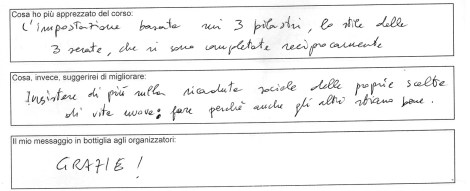 Cosa ho più apprezzato del corso:
L'impostazione basata sui 3 pilastri, lo stile delle
3 serate, che si sono completate reciprocamente
Cosa, invece, suggerirei di migliorare:
Insistere di più sulla ricaduta sociale delle proprie scelte
di vita nuove: fare perchè anche gli altri stiano bene.
Il mio messaggio in bottiglia agli organizzatori:
GRAZIE!